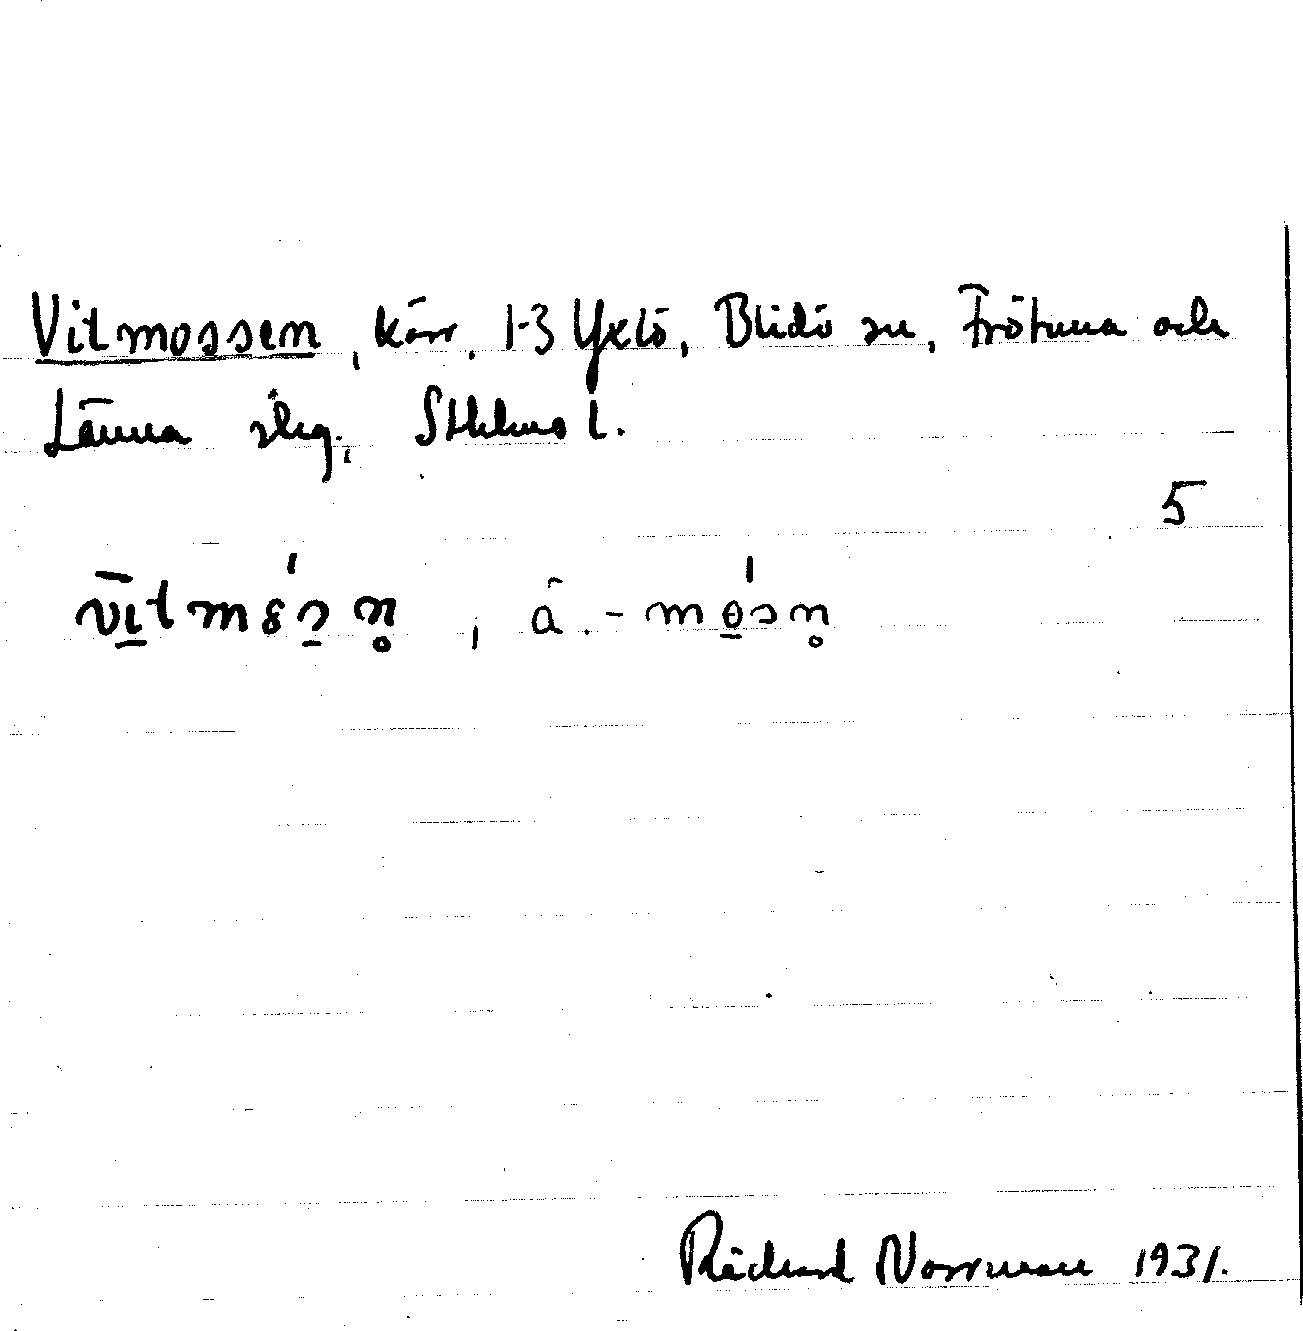 Vitmossen, kärr, 1-3 Yxlö, Blidö sn, Frötuna och
Länna slg, Sthlms l.
5
, å. -
Richard Norrman 1931.